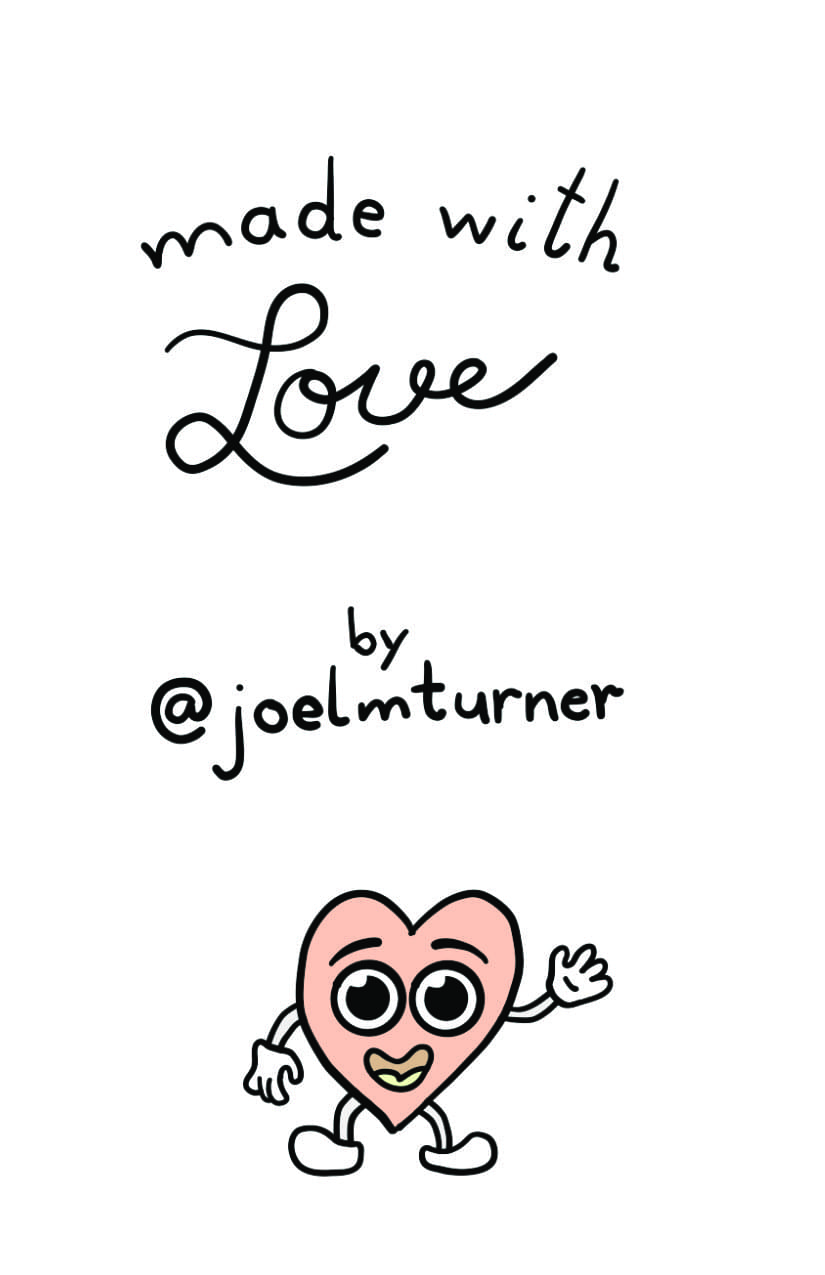 made with
Love
by
@joelmturner